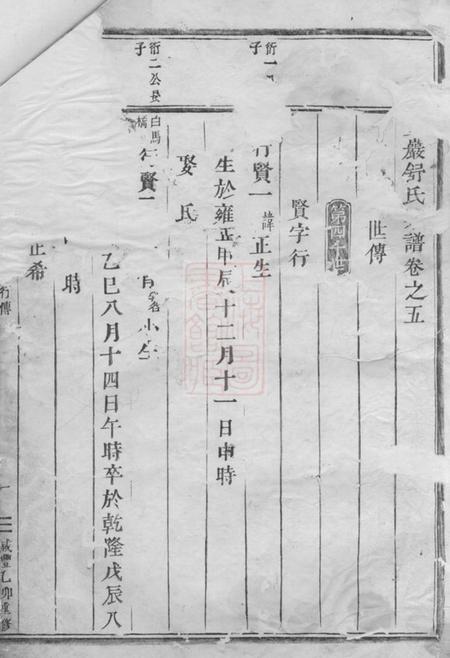 巖舒氏 譜卷之五
世傳
賢字行
行賢一 諱正生
生於雍正甲辰十二月十一日申時
娶 氏
衍二公長子
白馬橋
賢一
乙巳八月十四日午時卒於乾隆戊辰八
時
正希
行傳
咸豐乙卯重修